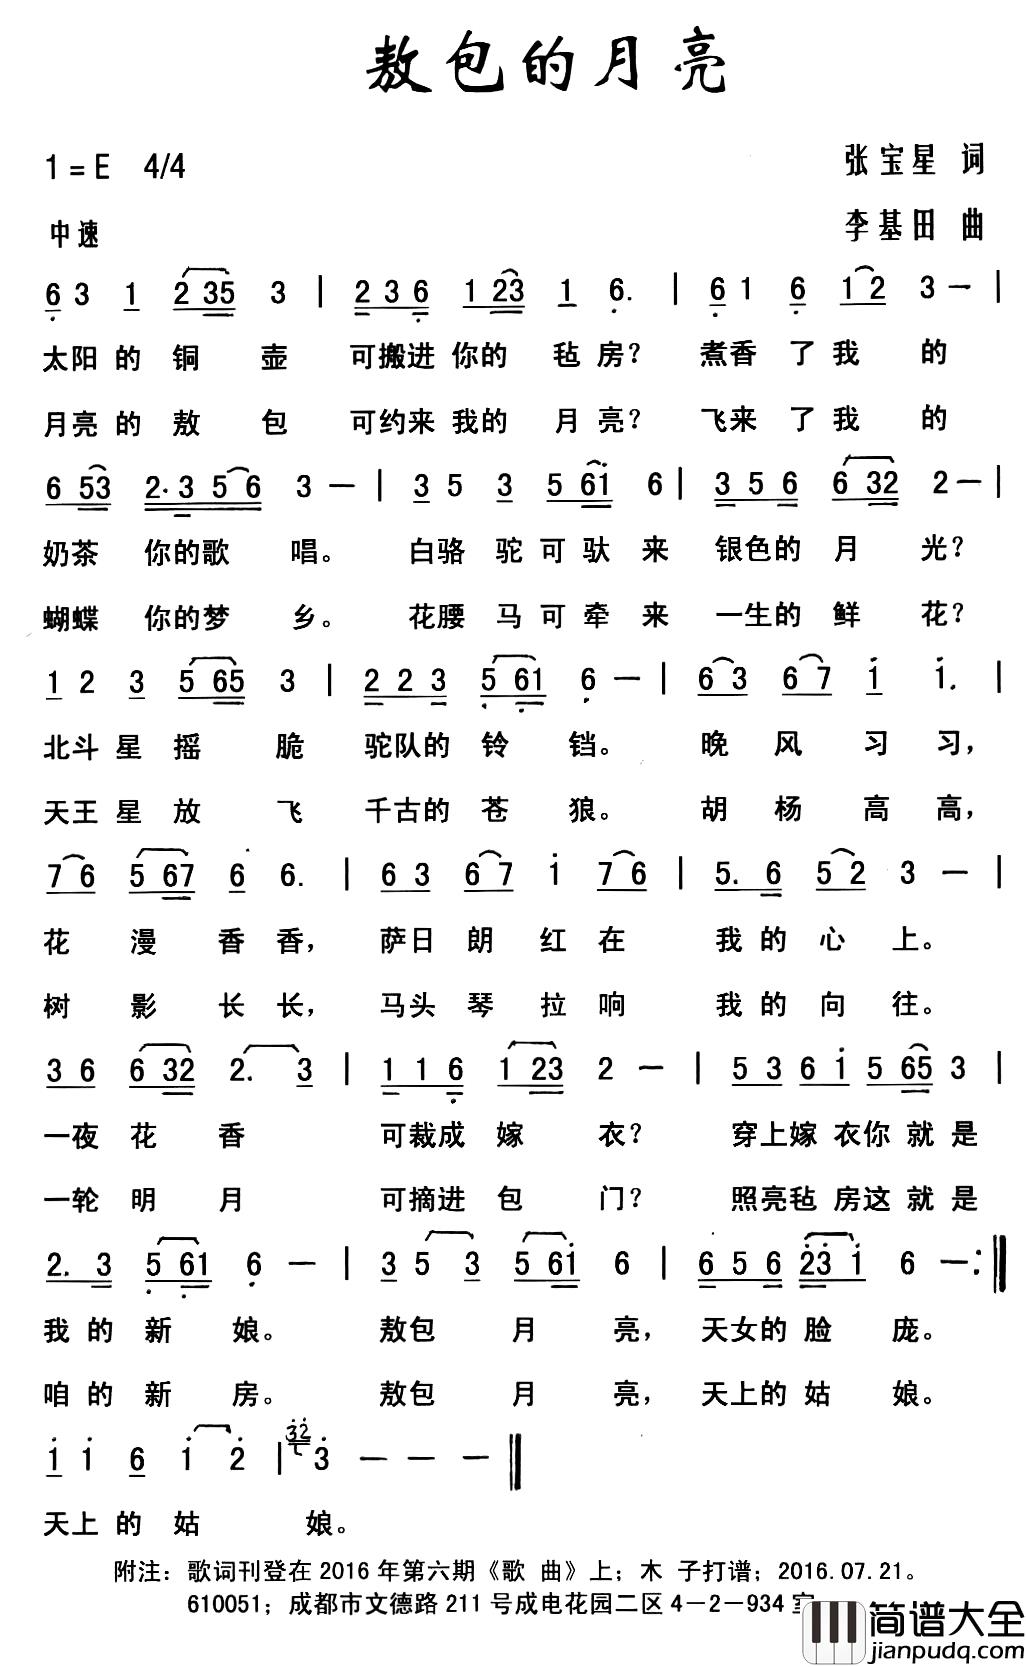 敖包的月亮
1=E 4/4
张宝星 词
中速
李基田 曲
6 3 1 2 35 3 | 2 3 6 1 23 1 6. | 6 1 6 1 2 3 — |
太阳的铜壶 可搬进你的毡房？ 煮香了我的
月亮的敖包 可约来我的月亮？ 飞来了我的
6 53 2·3 5 6 3 — | 3 5 3 5 61 6 | 3 5 6 6 32 2 — |
奶茶 你的歌唱。 白骆驼可驮来 银色的月光？
蝴蝶 你的梦乡。 花腰马可牵来 一生的鲜花？
1 2 3 5 65 3 | 2 2 3 5 61 6 — | 6 3 6 7 1 1. |
北斗星摇脆 驼队的铃铛。 晚风习习，
天王星放飞 千古的苍狼。 胡杨高高，
7 6 5 67 6 6. | 6 3 6 7 1 7 6 | 5. 6 5 2 3 — |
花漫香香， 萨日朗红在 我的心上。
树影长长， 马头琴拉响 我的向往。
3 6 6 32 2. 3 | 1 1 6 1 23 2 — | 5 3 6 1 5 65 3 |
一夜花香 可裁成嫁衣？ 穿上嫁衣你就是
一轮明月 可摘进包门？ 照亮毡房这就是
2. 3 5 61 6 — | 3 5 3 5 61 6 | 6 5 6 23 1 6 — :||
我的新娘。 敖包月亮， 天女的脸庞。
咱的新房。 敖包月亮， 天上的姑娘。
1 1 6 1 2 | 32 3 — — — ||
天上的姑娘。
附注：歌词刊登在2016年第六期《歌 曲》上；木 子打谱；2016.07.21。
610051；成都市文德路211号成电花园二区4－2－934室
简谱大全
jianpudq.com